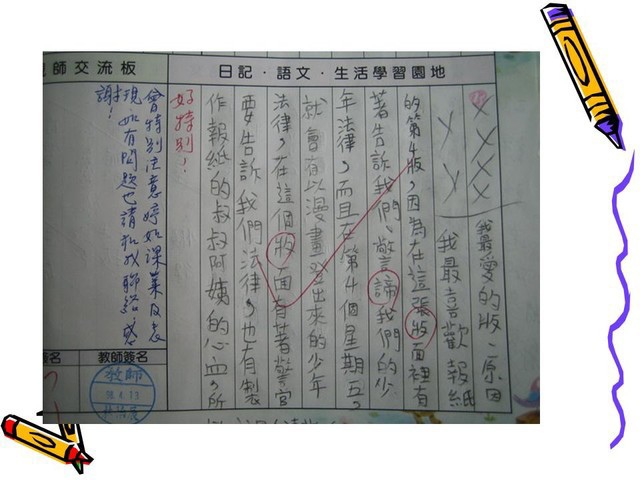 師交流板
日記．語文．生活學習園地
XXXX 我最愛的版、原因
XX 我最喜歡報紙
的第4版，因為在這張版面裡有
著告訴我們、警諦我們的少
年法律，而且在第4個星期五，
就會有以漫畫登出來的少年
法律，在這個版面有著警官
要告訴我們法律，也有製
作報紙的叔叔阿姨的心血，所
好特別！
會特別注意婷如課業及表
現 如有問題也請和我聯絡 感
謝！
簽名
教師簽名
教師
98.4.13